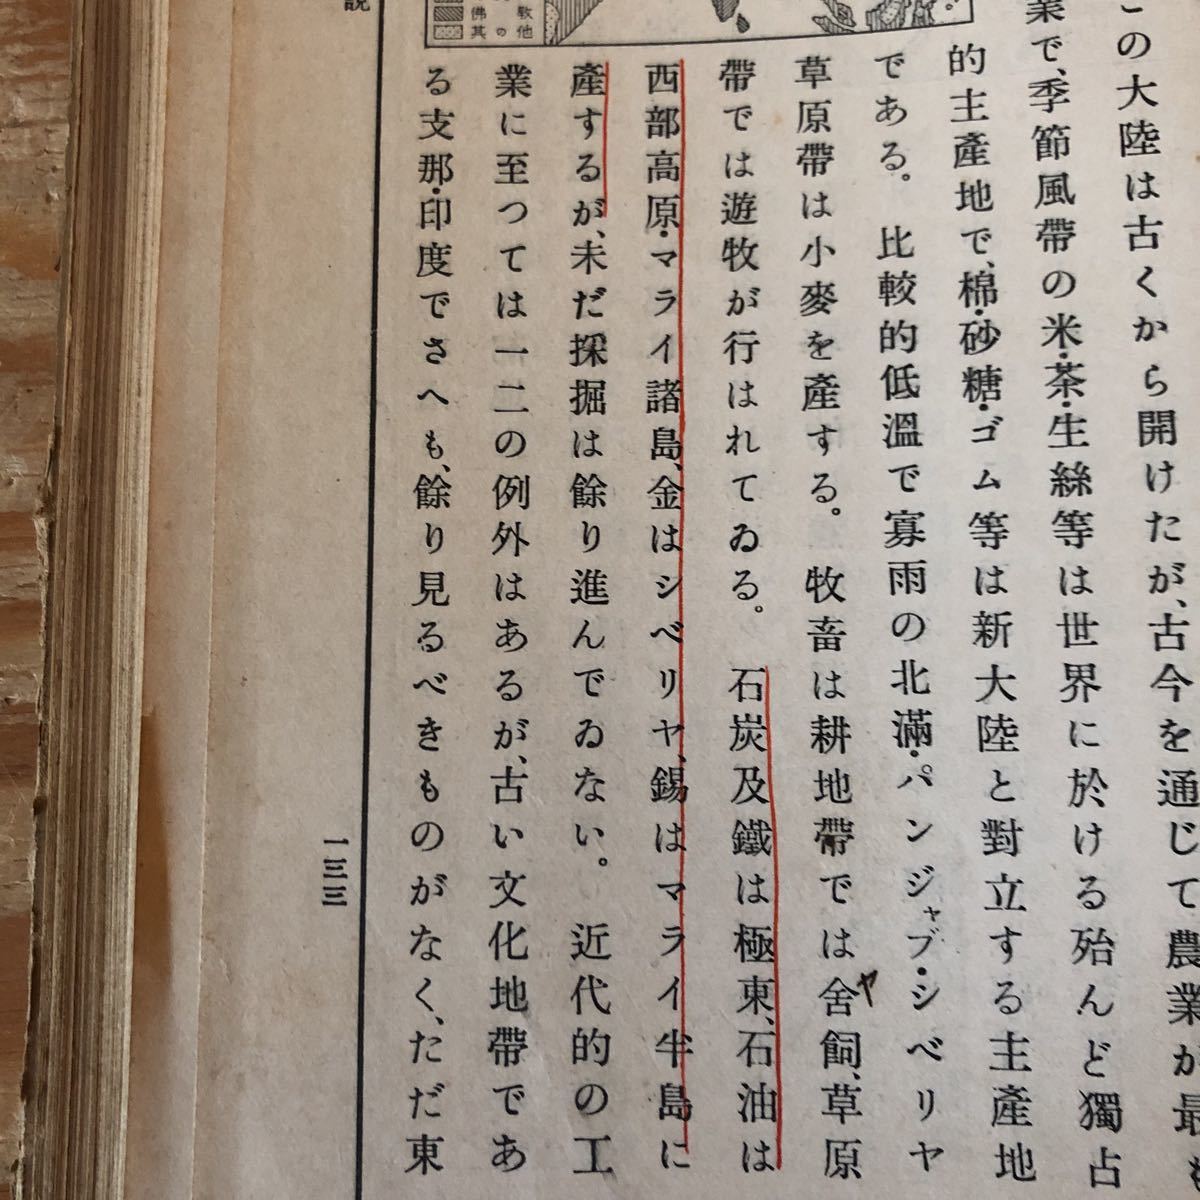 この大陸は古くから開けたが、古今を通じて農業が最も
業で、季節風帶の米・茶・生絲等は世界に於ける殆んど獨占
的主產地で、棉・砂糖・ゴム等は新大陸と對立する主產地
である。比較的低溫で寡雨の北滿・パンジャブ・シベリヤ
草原帶は小麥を產する。牧畜は耕地帶では舍飼、草原
ヤ
帶では遊牧が行はれてゐる。石炭及鐵は極東、石油は
西部高原・マライ諸島、金はシベリヤ、錫はマライ半島に
產するが、未だ採掘は餘り進んでゐない。近代的の工
業に至つては一二の例外はあるが、古い文化地帶であ
る支那・印度でさへも、餘り見るべきものがなく、ただ東
佛敎
其の他
說
一三三